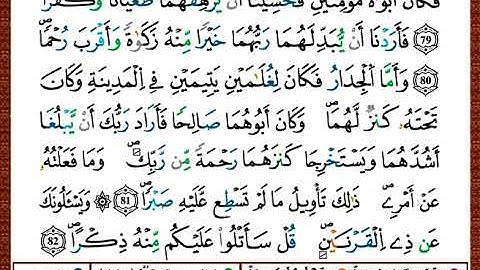 فَكَانَ أَبَوَٰهُ مُؤْمِنَيْنِ فَخَشِينَا أَنْ يُرْهِقَهُمَا طُغْيَٰنًا وَكُفْرًا
79 فَأَرَدْنَا أَنْ يُبَدِّلَهُمَا رَبُّهُمَا خَيْرًا مِنْهُ زَكَوٰةً وَأَقْرَبَ رُحْمًا
80 وَأَمَّا الْجِدَارُ فَكَانَ لِغُلَٰمَيْنِ يَتِيمَيْنِ فِي الْمَدِينَةِ وَكَانَ
تَحْتَهُ كَنزٌ لَهُمَا وَكَانَ أَبُوهُمَا صَالِحًا فَأَرَادَ رَبُّكَ أَنْ يَبْلُغَا
أَشُدَّهُمَا وَيَسْتَخْرِجَا كَنزَهُمَا رَحْمَةً مِن رَبِّكَ وَمَا فَعَلْتُهُ
عَنْ أَمْرِي ذَٰلِكَ تَأْوِيلُ مَا لَمْ تَسْطِع عَلَيْهِ صَبْرًا 81 ۞ وَيَسْـَٔلُونَكَ
عَن ذِي الْقَرْنَيْنِ قُلْ سَأَتْلُوا عَلَيْكُم مِنْهُ ذِكْرًا 82